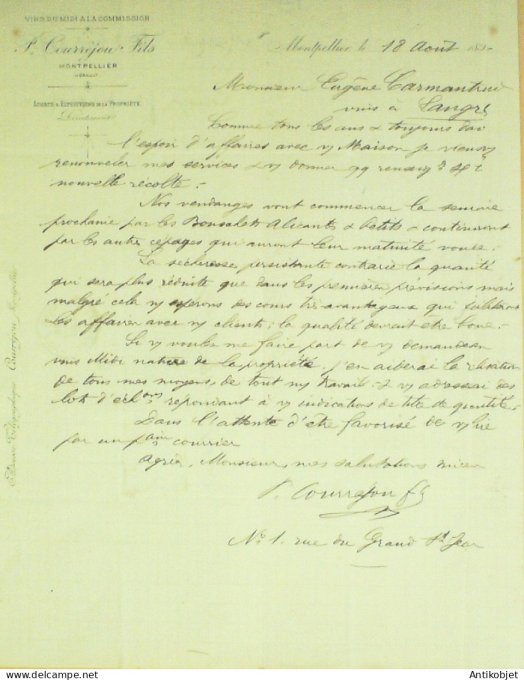 VINS DU MIDI A LA COMMISSION
P. Courréjou Fils
MONTPELLIER
HERAULT
ACHATS & EXPEDITIONS DE LA PROPRIÉTÉ
Montpellier le 18 Août 18
Monsieur Eugène Carmantrand
vins à Langres
Comme tous les ans & toujours dans
l'espoir d'affaires avec v/ Maison je viens v/
renouveler mes services & v/ donner qq renseigts sr la
nouvelle récolte.
Nos vendanges vont commencer la semaine
prochaine par les Bouschets Alicants & Petits & continueront
par les autres cépages qui auront leur maturité voulue.
La sécheresse persistante contrarie la quantité
qui sera plus réduite que dans les premières prévisions mais
malgré cela n/ espérons des cours très avantageux qui faciliteront
les affaires avec n/ clients; la qualité devrait être bonne.
Si v/ voulez me faire part de v/ demandes en
vins Midi nature de la propriété j'en aiderai la réalisation
de tous mes moyens de tout mon travail & v/ adresserai des
lots d'échons répondant à v/ indications de titre de quantité.
Dans l'attente d'être favorisé de v/
par un pain courrier
Agréez, Monsieur, mes salutations
P. Courréjou fils
No 1. rue du Grand St Jean
Adresse Télégraphique Courréjou Montpellier
PHOTOS NON CONTRACTUELLES
www.delcampe.net
Antikobjet